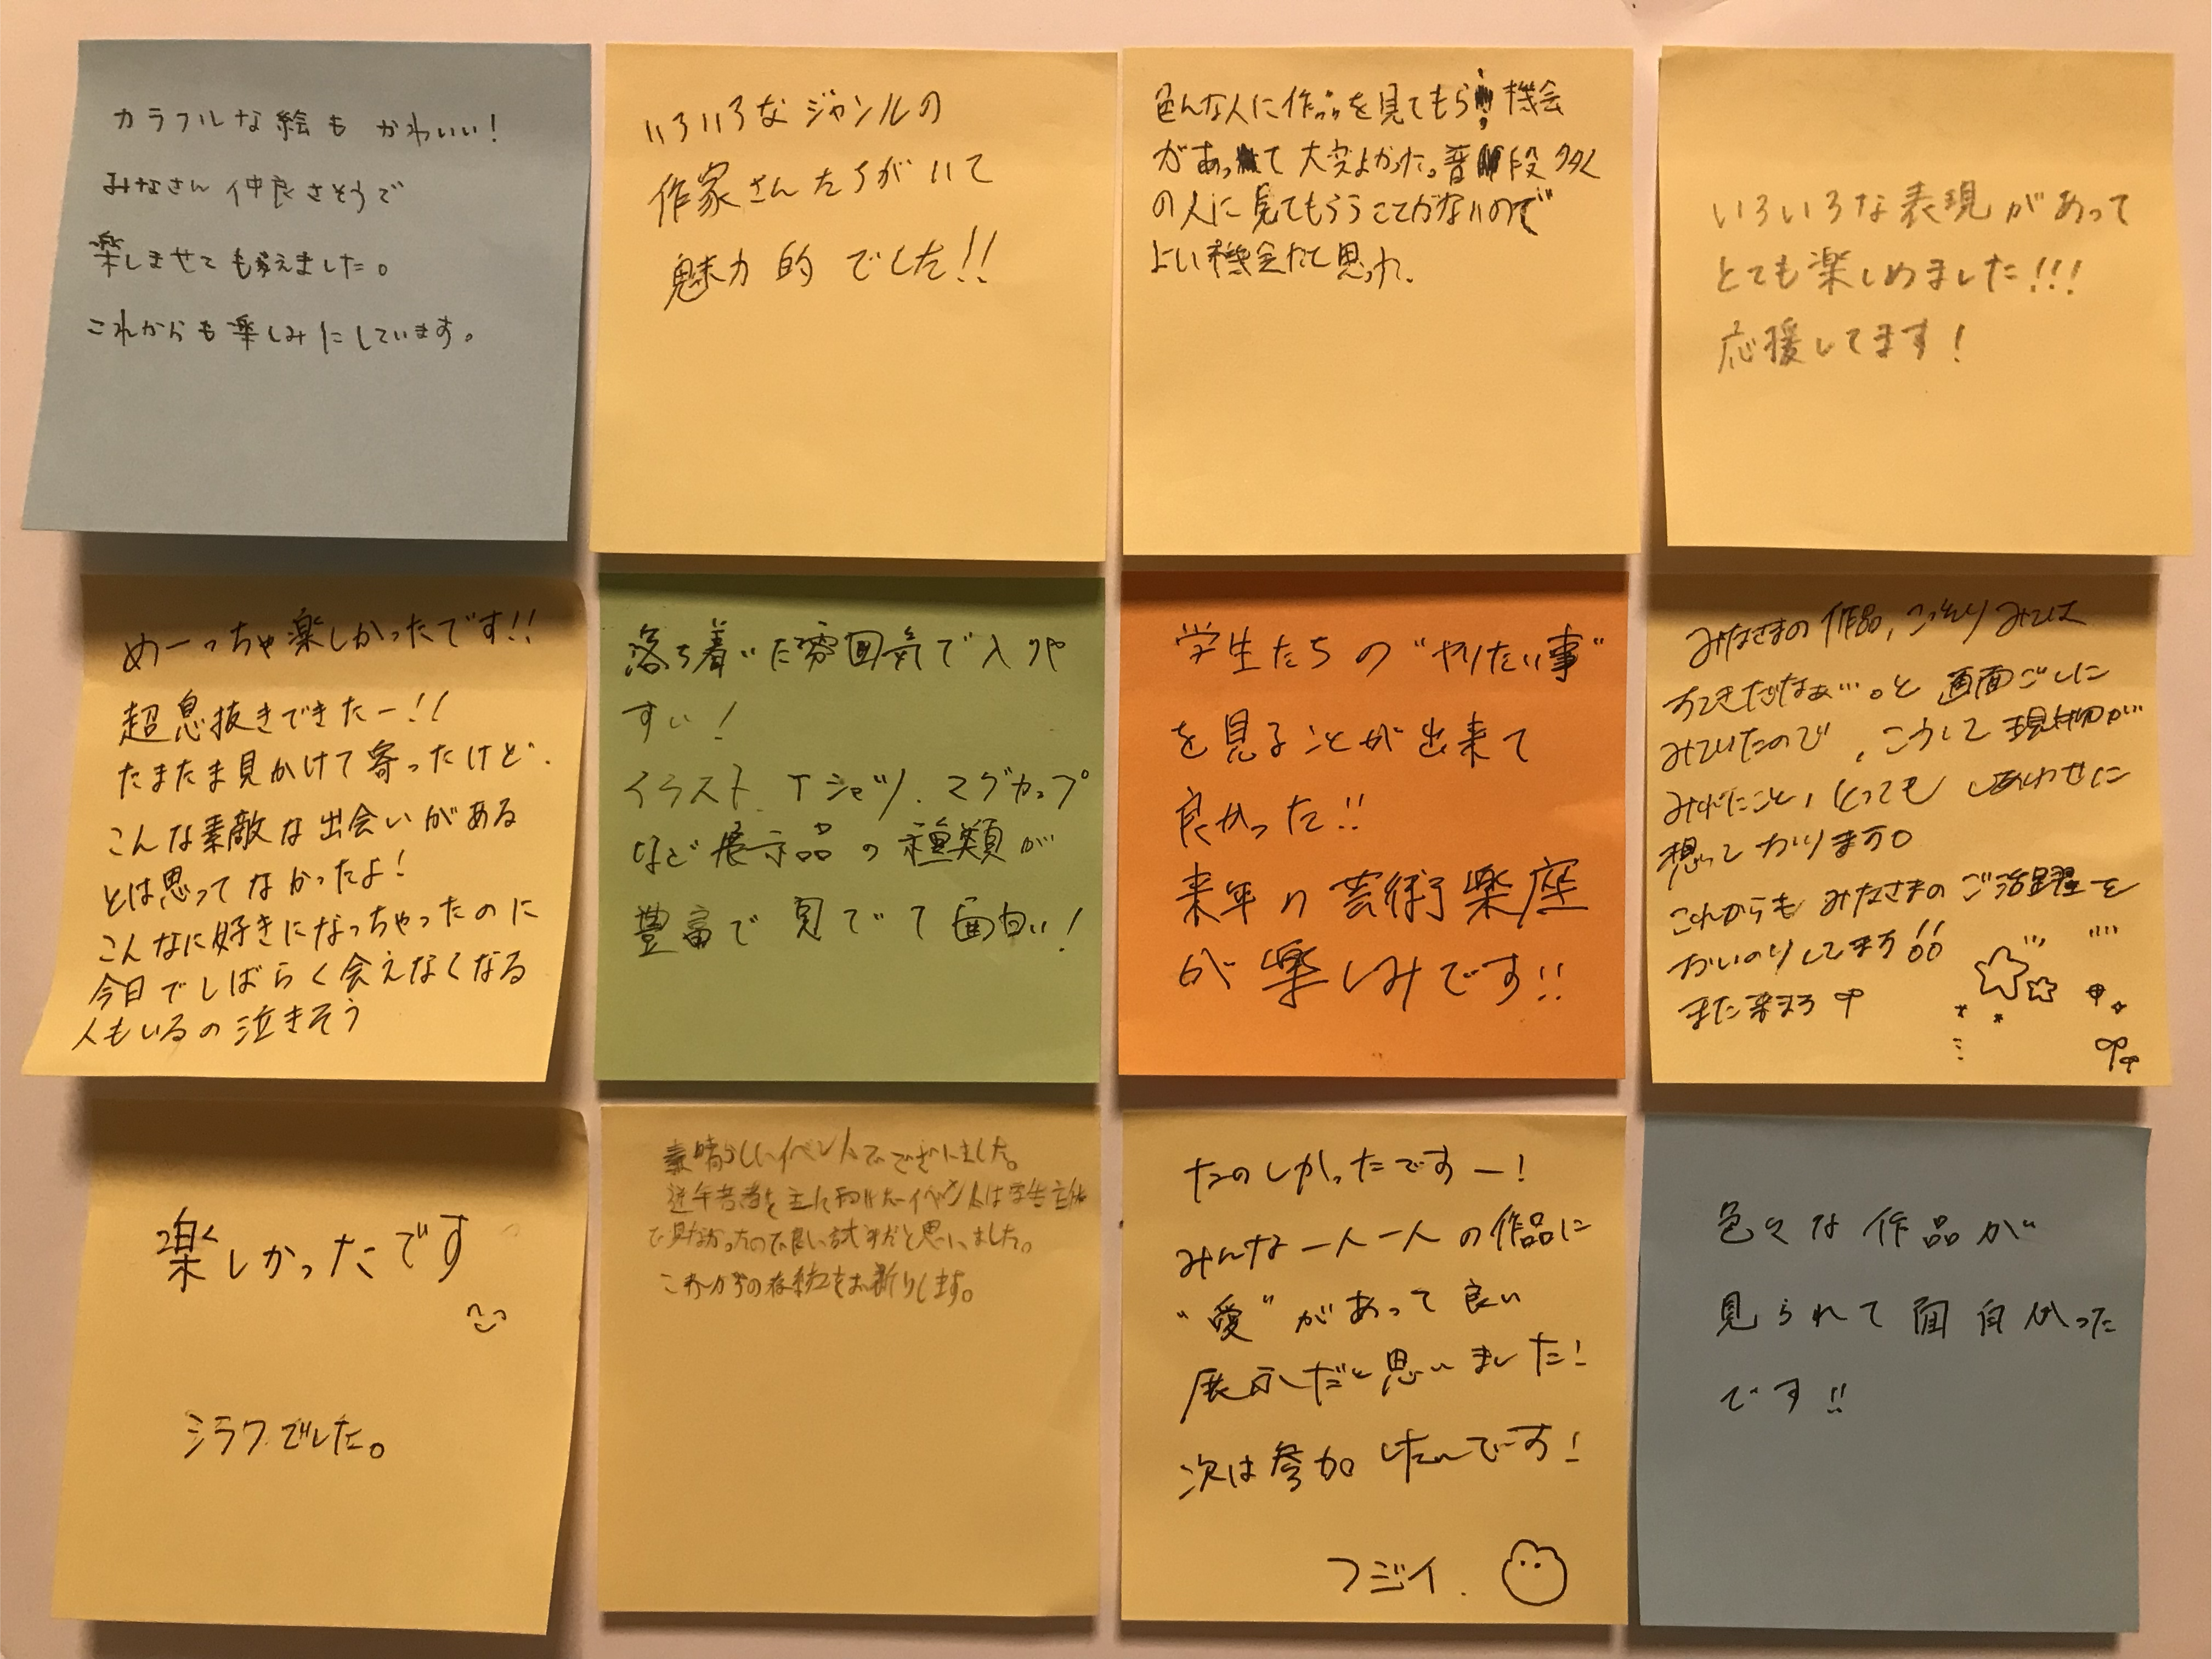 カラフルな絵も かわいい!
みなさん仲良さそうで
楽しませてもらえました。
これからも楽しみにしています。
いろいろなジャンルの
作家さんたちがいて
魅力的でした!!
色んな人に作品を見てもらう機会
があって大変よかった。普段多く
の人に見てもらうことがないので
よい機会だと思った.
いろいろな表現があって
とても楽しめました!!!
応援してます!
めーっちゃ楽しかったです!!
超息抜きできたー!!
たまたま見かけて寄ったけど.
こんな素敵な出会いがある
とは思ってなかったよ!
こんなに好きになっちゃったのに
今日でしばらく会えなくなる
人もいるの泣きそう
落ち着いた雰囲気で入りや
すい!
イラスト.Tシャツ.マグカップ
など展示品の種類が
豊富で見でて面白い!
学生たちの"やりたい事"
を見ることが出来て
良かった!!
来年の芸術楽座
が楽しみです!!
みなさまの作品,こっそりみては
すてきだなぁ…。と画面ごしに
みていたので,こうして現物が
みれたこと,とっても しあわせに
想っております。
これからも みなさまの ご活躍を
おいのりしてます!!
また来ます
楽しかったです
シラクでした。
素晴らしいイベントでございました。
近年若者を主に向けたイベントは学生主体
で見なかったので良い試みだと思いました。
これからの存続をお祈りします。
たのしかったですー!
みんな一人一人の作品に
"愛"があって良い
展示だと思いました!
次は参加したいです!
フジイ.
色々な作品が
見られて面白かった
です!!